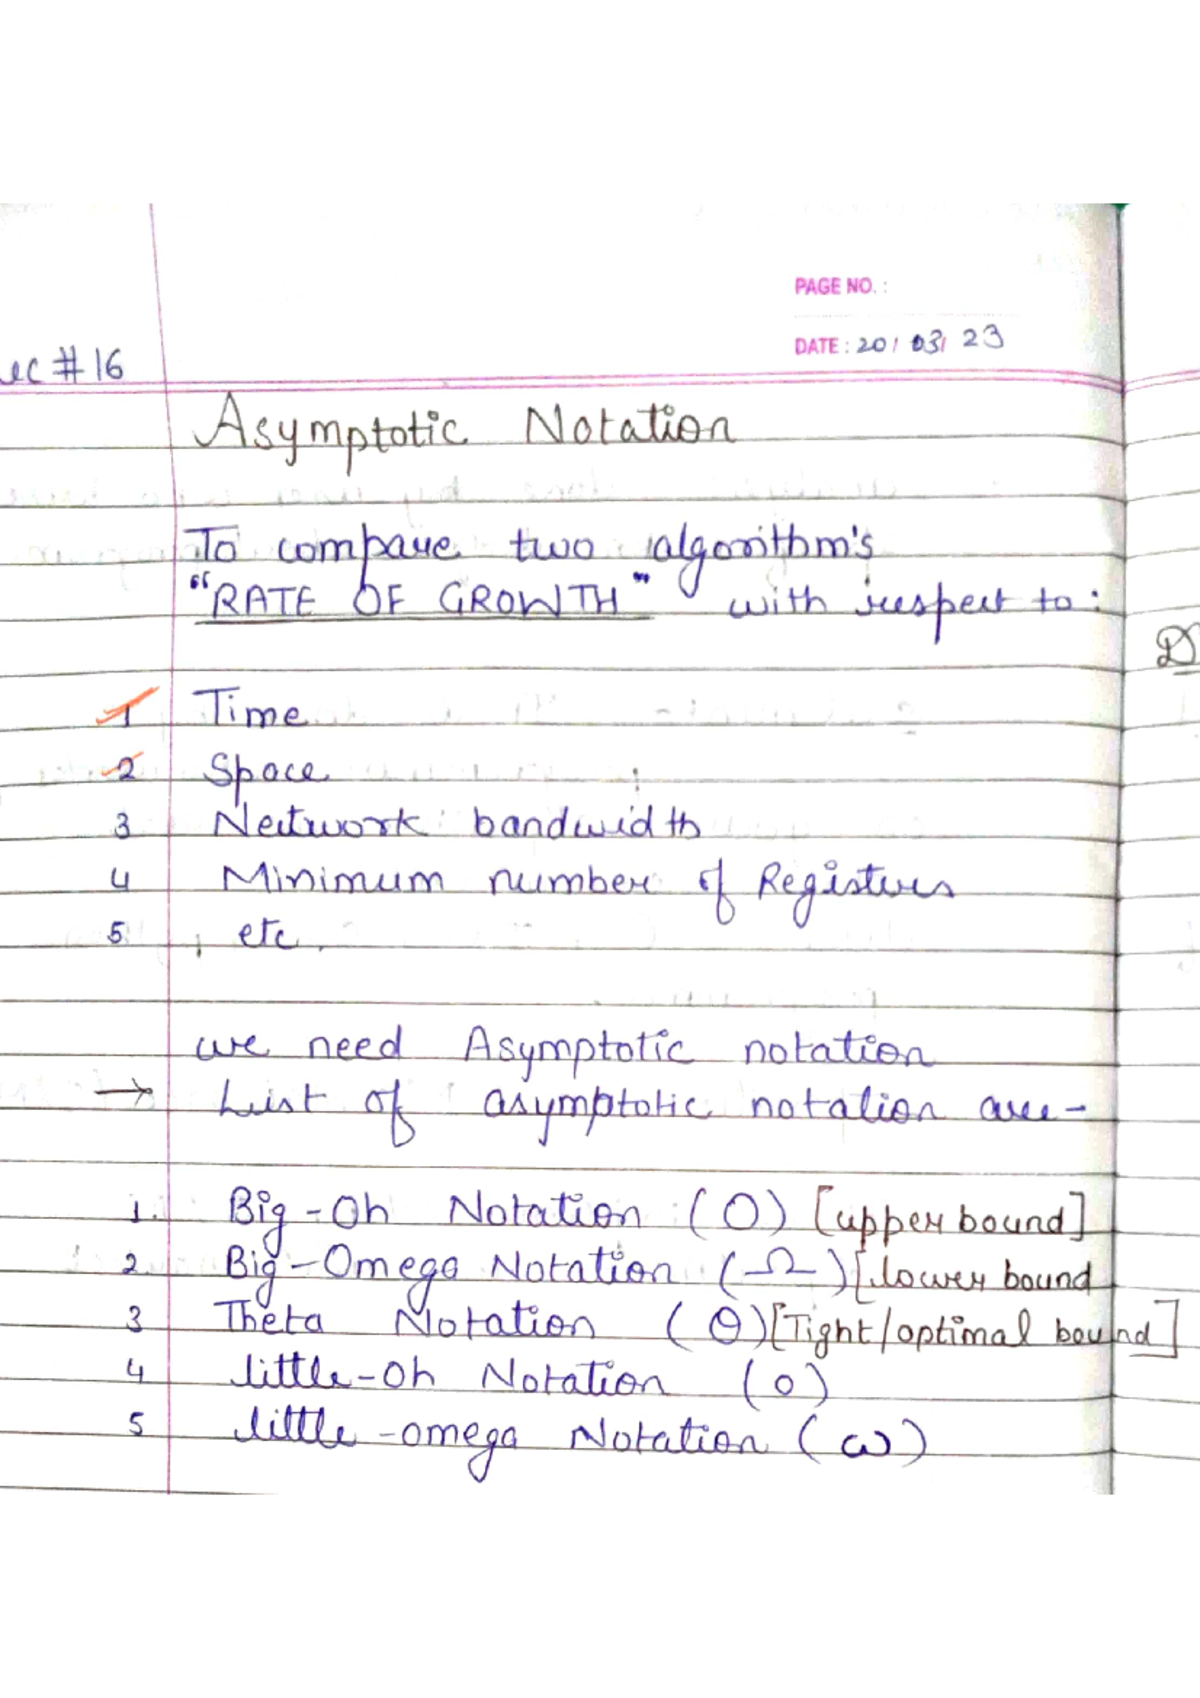 PAGE NO. :
DATE : 20/ 03/ 23
ec # 16
Asymptotic Notation
To compare two algorithm's
"RATE OF GROWTH" with respect to :
1 Time
2 Space
3 Network bandwidth
4 Minimum number of Registers
5 , etc.
we need Asymptotic notation
→ List of asymptotic notation are -
1. Big-Oh Notation (O) [upper bound]
2. Big-Omega Notation (Ω) [lower bound
3 Theta Notation (θ) [Tight/optimal bound]
4 little-oh Notation (o)
5 little-omega Notation (ω)